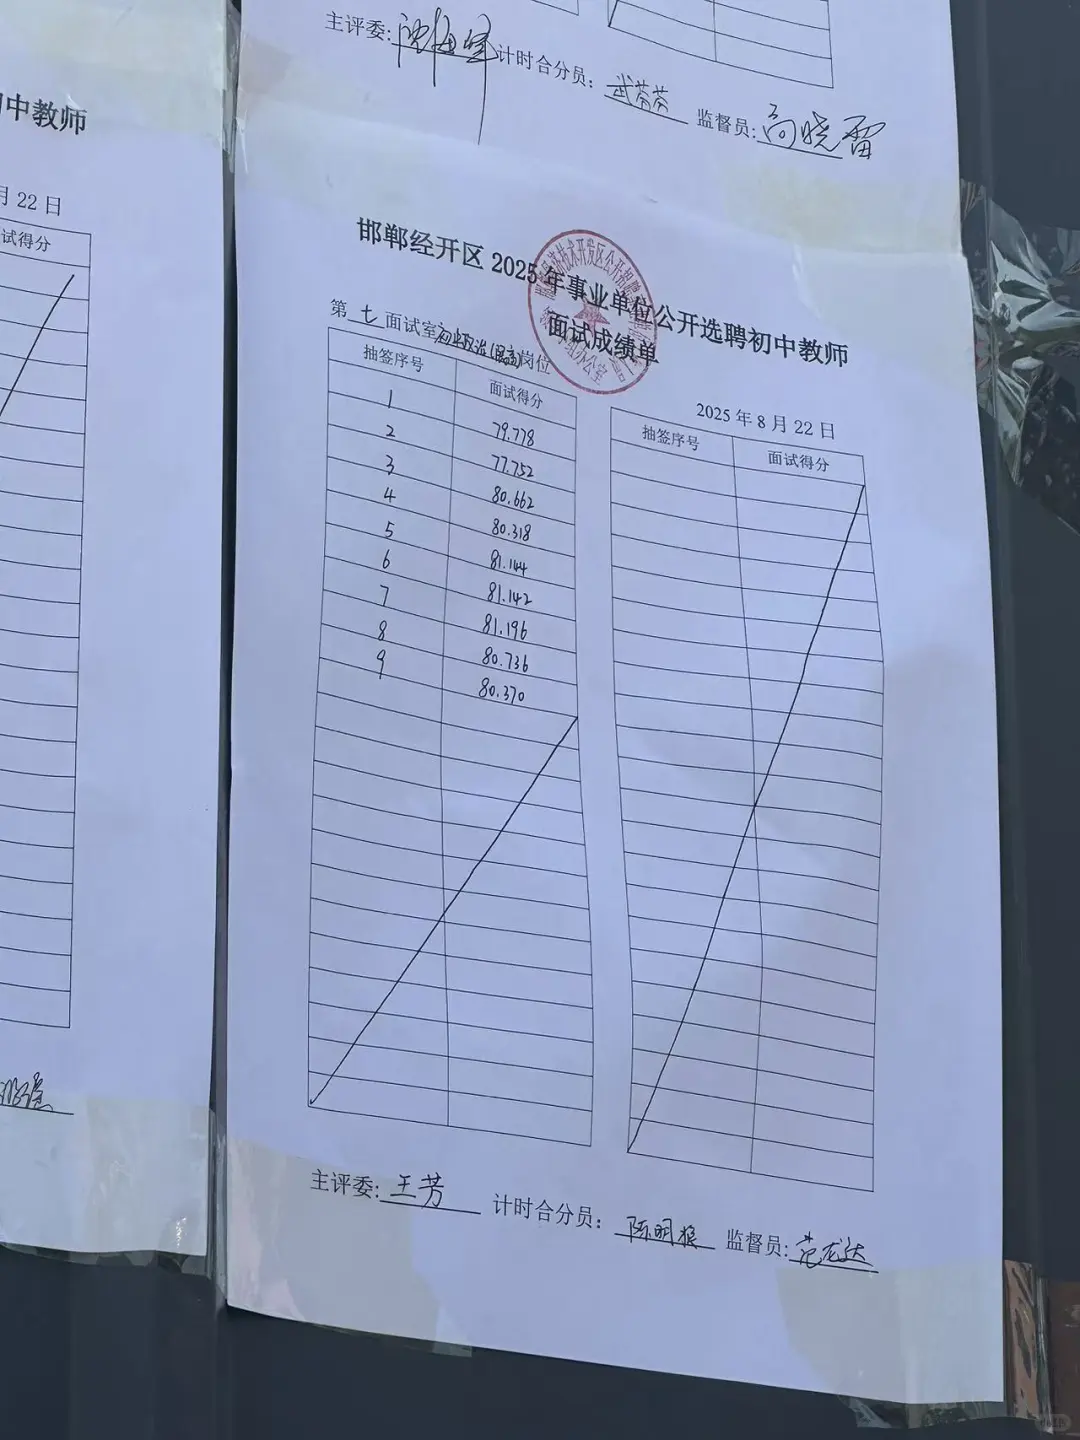 主评委:
计时合分员:
武芬芬
监督员:
高晓雷
中教师
月 22 日
试得分
邯郸经开区 2025 年事业单位公开选聘初中教师
面试成绩单
第 七 面试室 初中政治 岗位
2025 年 8 月 22 日
抽签序号 面试得分
1 79.778
2 77.752
3 80.662
4 80.318
5 81.144
6 81.142
7 81.196
8 80.736
9 80.370
抽签序号 面试得分
主评委: 王芳 计时合分员: 监督员: 范龙达